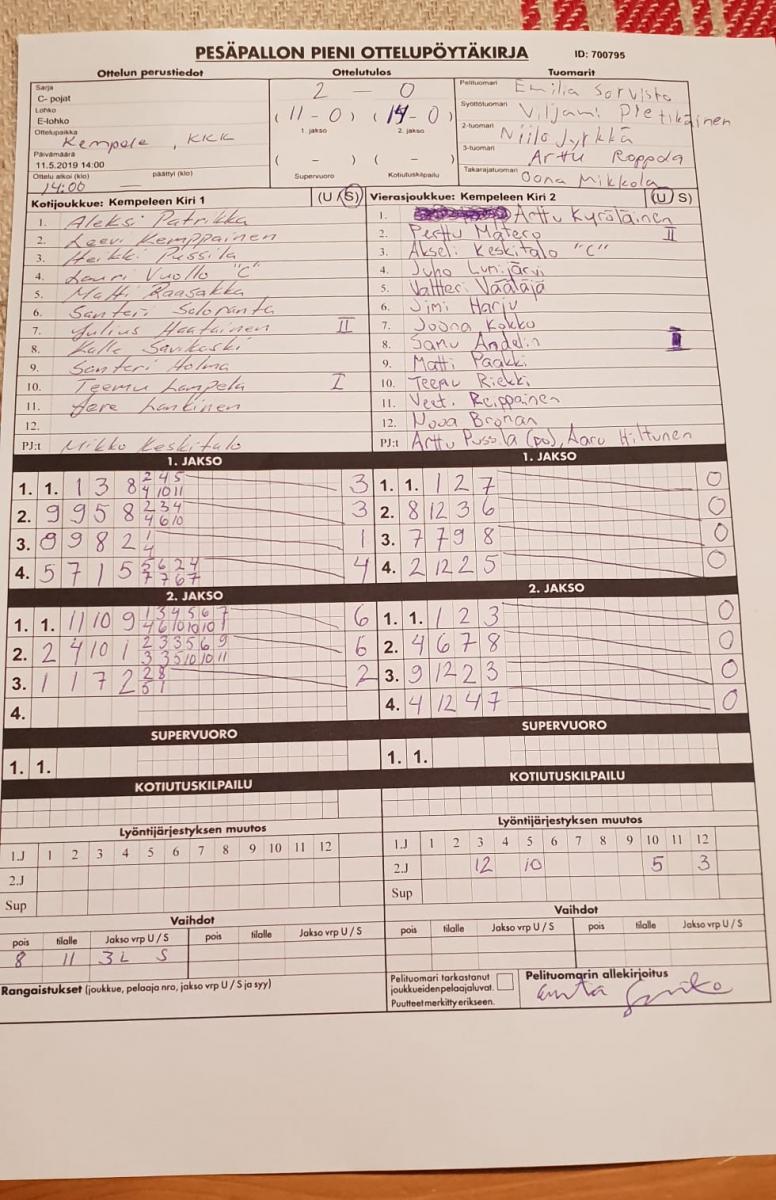 PESÄPALLON PIENI OTTELUPÖYTÄKIRJA ID: 700795
Ottelun perustiedot Ottelutulos Tuomarit
Sarja
C- pojat
Lohko
E-lohko
Ottelupaikka
Kempele, KKK
Päivämäärä
11.5.2019 14:00
Ottelu alkoi (klo) päättyi (klo)
14:00
2 - 0
(11-0) (14-0)
1. jakso 2. jakso
( - ) ( - )
Supervuoro Kotiutuskilpailu
Pelituomari Emilia Sorvisto
Syöttötuomari Viljami Pietikäinen
2-tuomari Niilo Jyrkkä
3-tuomari Arttu Roppola
Takarajatuomari Oona Mikkola
Kotijoukkue: Kempeleen Kiri 1 (U / S)
1. Aleksi Patrikka
2. Leevi Kemppainen
3. Heikki Pussila
4. Lauri Vuollo "C"
5. Matti Raasakka
6. Santeri Soloranta
7. Julius Haatainen II
8. Kalle Savikoski
9. Santeri Holma
10. Teemu Lampela I
11. Aere Lankinen
12.
PJ:t Mikko Keskitalo
Vierasjoukkue: Kempeleen Kiri 2 (U / S)
1. Arttu Kyröläinen
2. Perttu Matero II
3. Akseli Keskitalo "C"
4. Juho Lumijärvi
5. Valtteri Väätäjä
6. Jimi Harju
7. Joona Kokko
8. Samu Andelin I
9. Matti Paakki
10. Teemu Riekki
11. Veeti Reippainen
12. Nooa Bronan
PJ:t Arttu Pussila (po), Aaru Hiltunen
1. JAKSO
1. 1. 1 3 8 2 4 5 3
4 10 11
2. 9 9 5 8 2 3 4 3
4 6 10
3. 8 9 8 2 1 1
4
4. 5 7 1 5 5 6 2 4 4
7 7 6 7
2. JAKSO
1. 1. 11 10 9 1 3 4 5 6 7 6
4 6 10 10 10 1
2. 2 4 10 1 2 3 3 5 6 9 6
3 3 5 10 10 11
3. 1 1 7 2 2 8 2
5 1
4.
SUPERVUORO
1. 1.
KOTIUTUSKILPAILU
1. JAKSO
1. 1. 1 2 7 0
2. 8 12 3 6 0
3. 7 7 9 8 0
4. 2 12 2 5 0
2. JAKSO
1. 1. 1 2 3 0
2. 4 6 7 8 0
3. 9 12 2 3 0
4. 4 12 4 7 0
SUPERVUORO
1. 1.
KOTIUTUSKILPAILU
Lyöntijärjestyksen muutos
1.J 1 2 3 4 5 6 7 8 9 10 11 12
2.J
Sup
Vaihdot
pois tilalle Jakso vrp U / S pois tilalle Jakso vrp U / S
8 11 3L S
Rangaistukset (joukkue, pelaaja nro, jakso vrp U / S ja syy)
Lyöntijärjestyksen muutos
1.J 1 2 3 4 5 6 7 8 9 10 11 12
2.J 12 10 5 3
Sup
Vaihdot
pois tilalle Jakso vrp U / S pois tilalle Jakso vrp U / S
Pelituomari tarkastanut
joukkueiden pelaajaluvat.
Puutteet merkitty erikseen.
Pelituomarin allekirjoitus